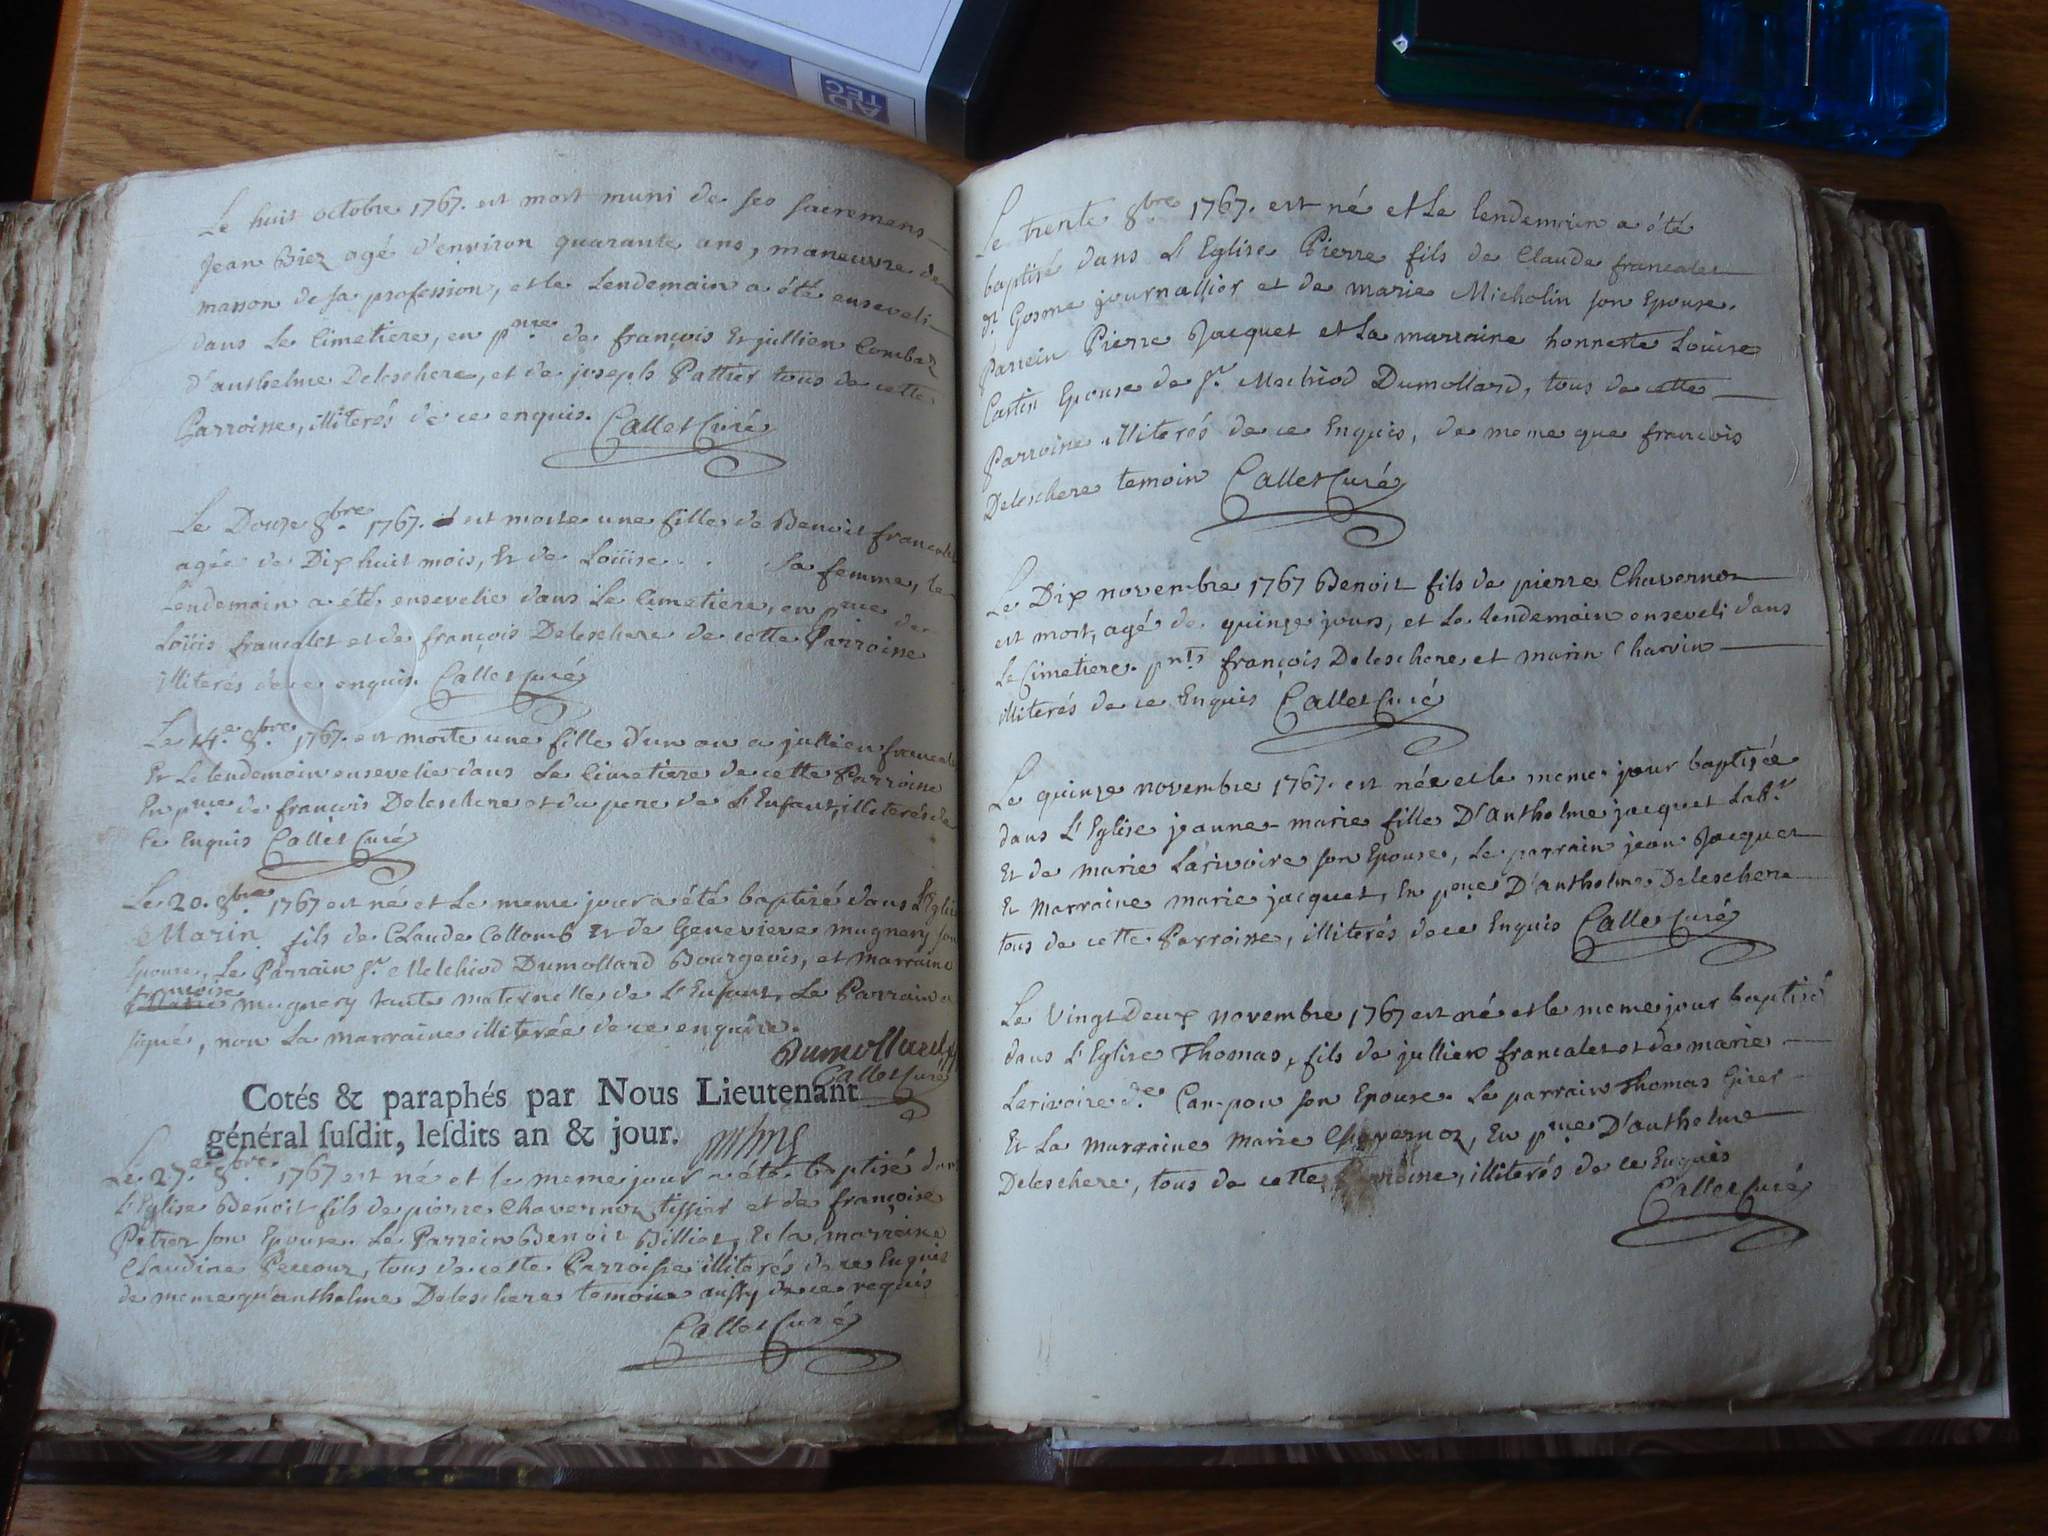 AD
TEC
Le huit octobre 1767. est mort muni de ses sacremens
Jean Biez agé d'environ quarante ans, maneuvre de
masson de sa profession, et le Lendemain a été enseveli
dans Le Cimetiere, en pnce de françois Et jullien Combaz
d'anthelme Deleschere, et de joseph Pattier tous de cette
Parroisse, illiterés de ce enquis. Callet Curé
Le Douze 8bre 1767. est morte une fille de Benoit francalet
agée de Dix huit mois, Et de Loüise . . sa femme, le
Lendemain a été ensevelie dans Le Cimetiere, en pnce de
Loüis francalet et de françois Deleschere de cette Parroisse
illiterés de ce enquis. Callet Curé
Le 14e 8bre 1767. est morte une fille d'un an a jullien francalet
Et Le lendemain ensevelie dans Le Cimetiere de cette Parroisse
En pnce de françois Deleschere et du pere de L'Enfant, illiterés de
Ce Enquis Callet Curé
Le 20. 8bre 1767 est né et Le meme jour a été baptisé dans L'Eglise
Marin fils de Claude Collomb Et de Genevieve mugnery son
Epouse, Le Parrain Sr. Melchiod Dumollard Bourgeois, et marraine
mugnery tante maternelle de L'Enfant, Le Parrain a
signé, non La marraine illiterée de ce enquise.
Dumollard
Callet Curé
Cotés & paraphés par Nous Lieutenant
général ſuſdit, leſdits an & jour.
Le 27e 8bre 1767 est né et le meme jour a été baptisé dans
L'Eglise Benoit fils de pierre Chavernoz tissier et de françoise
Petrez son Epouse. Le Parrein Benoit Billiet, Et la marraine
Claudine Pecour, tous de cette Parroisse illiterés de ce Enquis
de meme qu'anthelme Deleschere temoin aussy de ce requis
Callet Curé
Le trente 8bre 1767. est né et Le lendemain a été
baptisé dans L'Eglise Pierre fils de Claude francalet
dt Gosme journallier et de marie Micholin son Epouse.
Parrein Pierre Jacquet et La marraine honneste Louise
Cartin Epouse de Sr. Melchiod Dumollard, tous de cette
Parroisse illiterés de ce Enquis, de meme que francois
Deleschere temoin Callet Curé
Le Dix novembre 1767 Benoit fils de pierre Chavernoz
est mort, agé de quinze jours, et Le lendemain enseveli dans
Le Cimetiere. pnts françois Deleschere, et marin Charvin
illiterés de ce Enquis Callet Curé
Le quinze novembre 1767. est née et le meme jour baptisée
dans L'Eglise jeanne-marie fille D'anthelme jacquet Labr
Et de marie Larivoire son Epouse, Le parrain jean Jacquet
Et Marraine marie jacquet, En pnce D'anthelme Deleschere
tous de cette Parroisse, illiterés de ce Enquis Callet Curé
Le Vingt Deux novembre 1767 est né et le meme jour baptisé
dans L'Eglise Thomas, fils de jullien francalet et de marie
Larivoire de Cam-pon son Epouse. Le parrain Thomas Girer
Et La Marraine Marie Chavernoz, En pnce D'anthelme
Deleschere, tous de cette Parroisse, illiterés de ce Enquis
Callet Curé